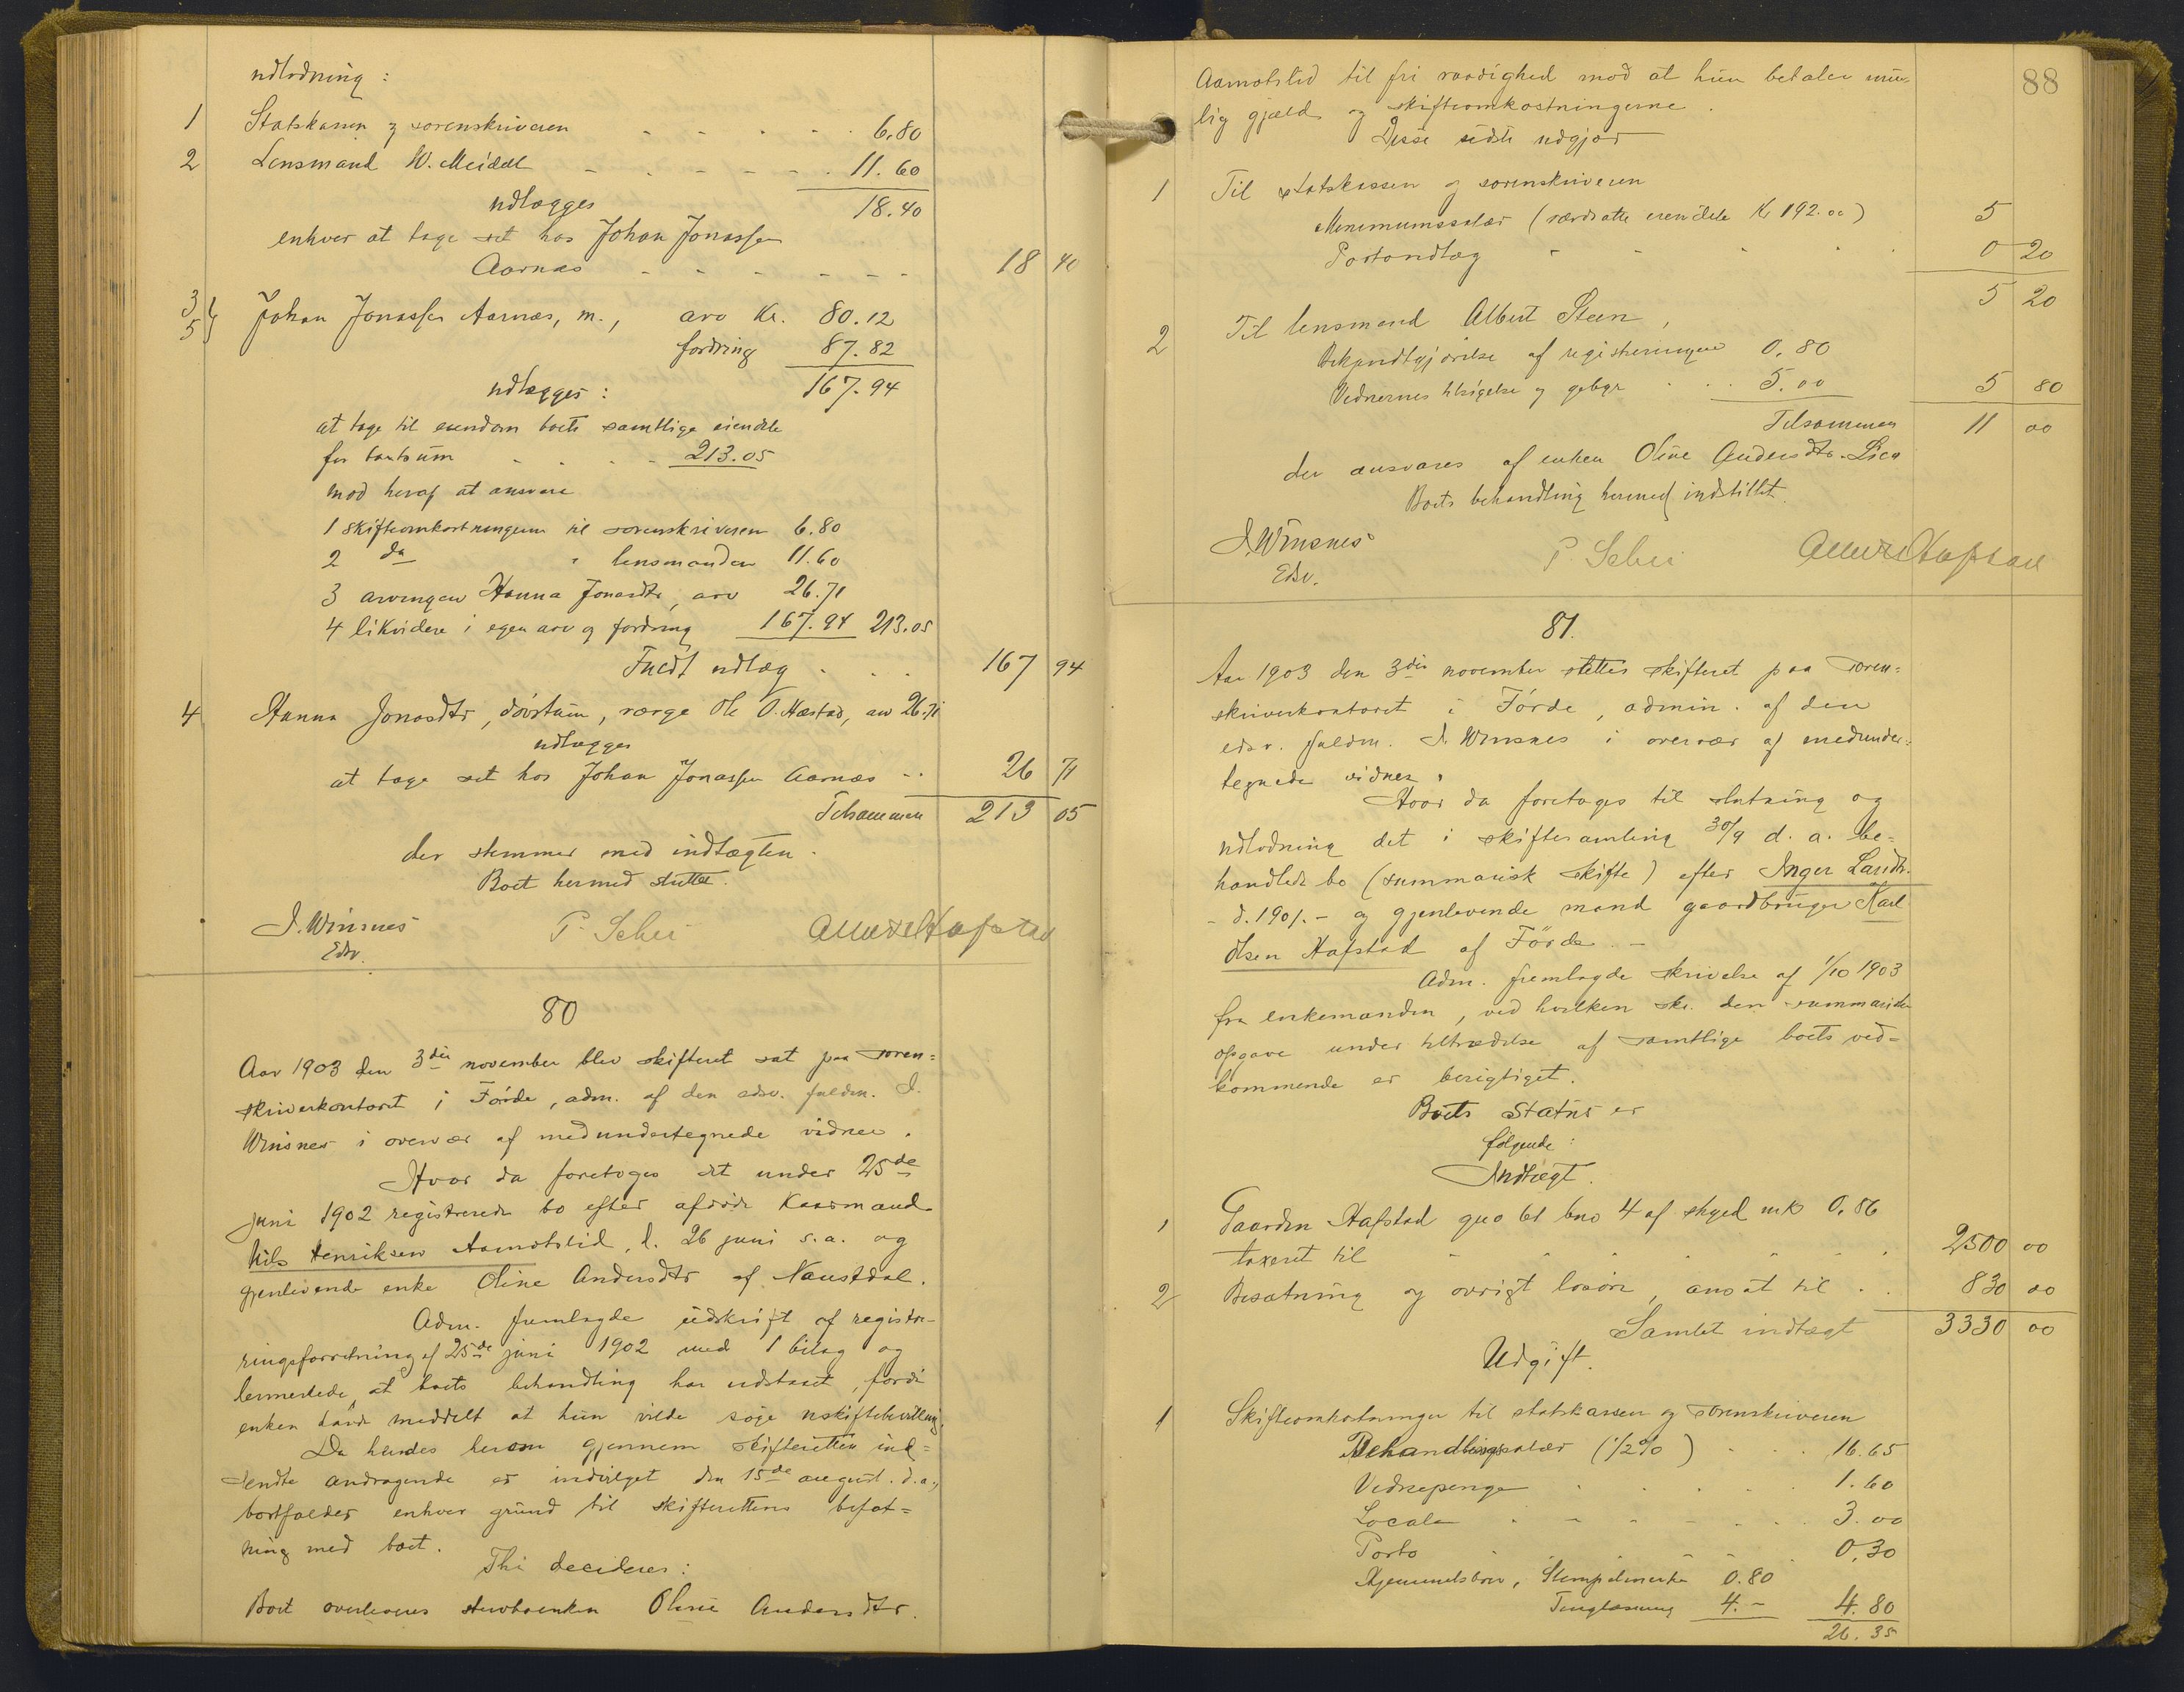 udlodning:
1 Statskassen og sorenskriveren - - - - - 6.80
2 Lensmand W. Meidell - - - - - 11.60
udlægges 18.40
enhver at tage det hos Johan Jonassen
Aarnæs - - - - - - 18 40
3 5 } Johan Jonassen Aarnæs, m., arv Kr. 80.12
fordring 87.82
udlægges: 167.94
at tage til eiendom boets samtlige eiendele
for taxtsum - - - - 213.05
mod heraf at ansvare
1 skifteomkostningerne til sorenskriveren 6.80
2 do " lensmanden 11.60
3 arvingen Hanna Jonasdtr, arv 26.71
4 likvidere i egen arv og fordring 167.94 213.05
Fuldt udlæg - - - 167 94
4 Hanna Jonasdtr, værge Ole O. Hæstad, arv 26.71
udlægges
at tage det hos Johan Jonassen Aarnæs - - 26 71
Tilsammen 213 05
der stemmer med indtægten.
Boet hermed sluttet.
J. Winsnes P. Schei Hafstad
Edsv.
80
Aar 1903 den 3die november blev skifteret sat paa soren=
skriverkontoret i Førde, adm. af den edsv. fuldm. J.
Winsnes i overvær af medundertegnede vidner.
Hvor da foretoges det under 25de
juni 1902 registrerede bo efter afdøde kaarmand
Nils Henriksen Aamotslid, d. 26 juni s.a. og
gjenlevende enke Oline Andersdtr af Naustdal.
Adm. fremlagde udskrift af registre-
ringsforretning af 25de juni 1902 med 1 bilag og
bemerkede, at boets behandling har udstaaet, fordi
enken havde meddelt at hun vilde søge uskiftebevilling.
Da hendes herom gjennem skifteretten ind=
sendte andragende er indvilget den 15de august d.a.,
bortfalder enhver grund til skifterettens befat=
ning med boet.
Thi decideres:
Boet overleveres sterboenken Oline Andersdtr.
88
Aamotslid til fri raadighed mod at hun betaler mu-
lig gjæld og skifteomkostningerne.
Disse sidste udgjør
1 Til statskassen og sorenskriveren
Minimumssalær (værdsatte eiendele Kr 192.00) 5
Portoudlæg - - - - 0 20
5 20
2 Til lensmand Albert Steen,
Bekjendtgjørelse af registreringen 0.80
Vidnernes tilsigelse og gebyr - - - 5.00 5 80
Tilsammen 11 00
der ansvares af enken Oline Andersdtr.
Boets behandling hermed indstillet.
J. Winsnes P. Schei Hafstad
Edsv.
81.
Aar 1903 den 3die november settes skifteret paa soren=
skriverkontoret i Førde, admin. af den
edsv. fuldm. J. Winsnes i overvær af medunder=
tegnede vidner.
Hvor da foretoges til slutning og
udlodning det i skiftesamling 30/9 d. a. be=
handlede bo (summarisk skifte) efter Inger Larsdtr.
- d. 1901. - og gjenlevende mand gaardbruger Karl
Olsen Hafstad af Førde. -
Adm. fremlagde skrivelse af 1/10 1903
fra enkemanden, ved hvilken skr. den summariske
opgave under tiltrædelse af samtlige boets ved-
kommende er berigtiget.
Boets status er
følgende:
Indtægt.
1 Gaarden Hafstad gno 61 bno 4 af skyld mk 0.86
taxeret til - - - - - - 2500 00
2 Besætning og øvrigt løsøre, ansat til . . 830 00
Samlet indtægt 3330 00
Udgift.
1 Skifteomkostninger til statskassen og sorenskriveren
Behandlingssalær (1/2%) - - - 16.65
Vidnepenge - - - - - 1.60
Locale - - - - - - 3.00
Porto - - - 0.30
Hjemmelsbrev, Stempelmerke 0.80
Tinglæsning 4.- 4.80
26.35